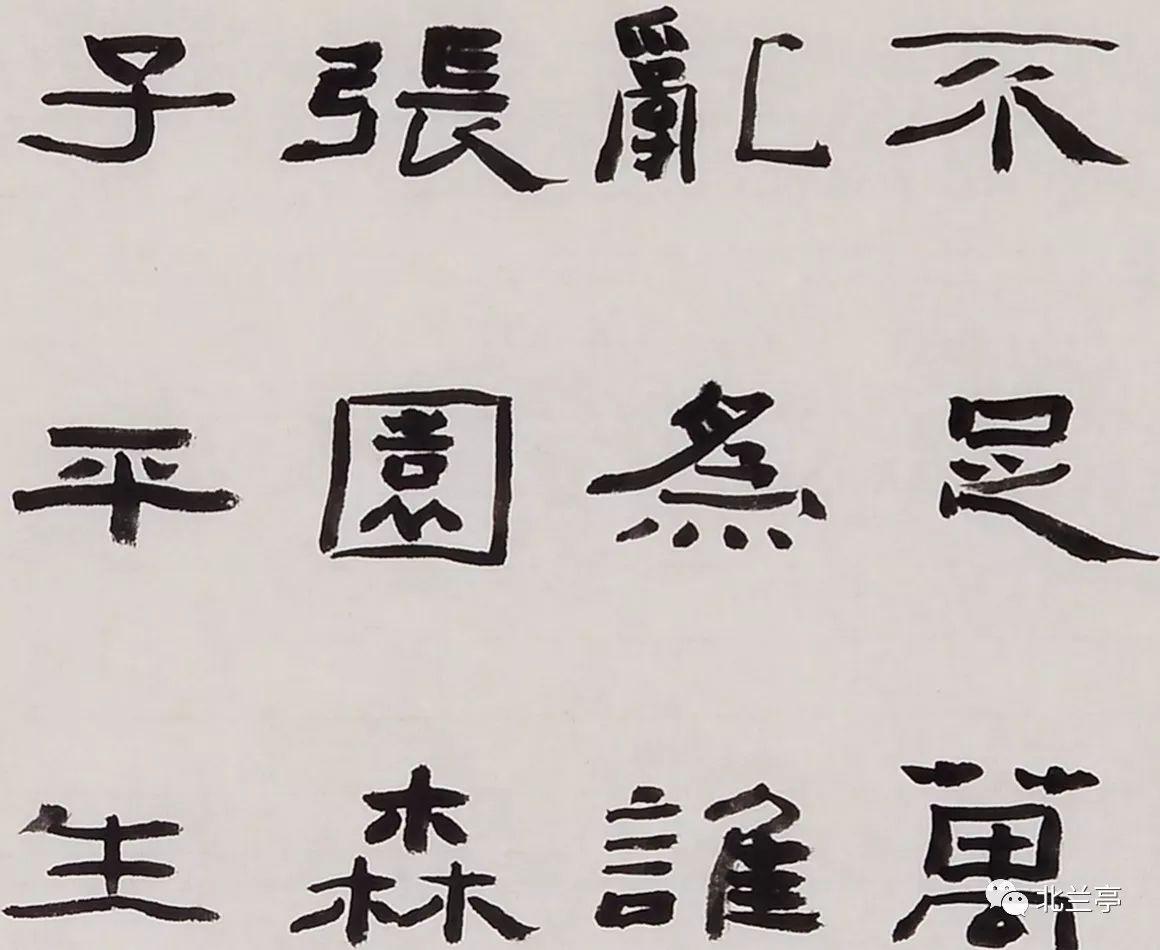 不足萬
亂為誰
張園森
子平生
北兰亭